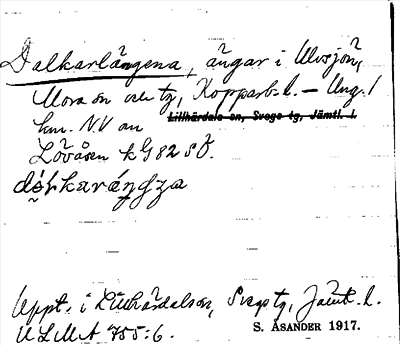 Dalkarlängena, ängar i Ulvsjön,
Mora sn och tg, Kopparb. l. – Ung. 1
Lillhärdals sn, Svegs tg, Jämtl. l.
km. NV om
Lövåsen k G 82 SÖ.
Uppt. i Lillhärdals sn, Svegs tg, Jämtl. l.
ULMA 755:6. S. ÅSANDER 1917.